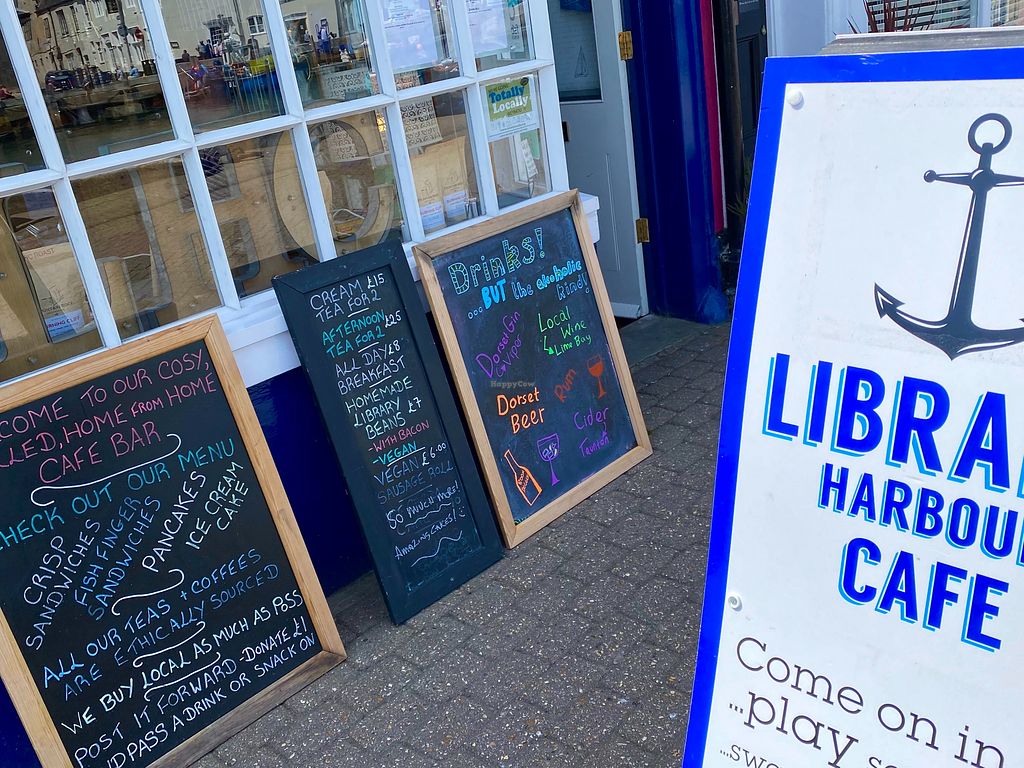 COME TO OUR COSY,
LED, HOME FROM HOME
CAFE BAR
CHECK OUT OUR MENU
CRISP
SANDWICHES
FISH FINGER
SANDWICHES
PANCAKES
ICE CREAM
CAKE
ALL OUR TEAS + COFFEES
ARE ETHICALLY SOURCED
WE BUY LOCAL AS MUCH AS POSS
POST IT FORWARD - DONATE £1
ND PASS A DRINK OR SNACK ON
CREAM £15
TEA FOR 2
AFTERNOON
TEA FOR 2 £25
ALL DAY £8
BREAKFAST
HOMEMADE
LIBRARY
BEANS £7
- WITH BACON
- VEGAN
VEGAN £6.00
SAUSAGE ROLL
So much more!
Amazing Cakes!
Drinks!
...BUT the alcoholic
kind!
Dorset Gin
Viper
Local
Wine
Lime Bay
Dorset
Beer
Rum
Cider
Taunton
Totally
Locally
HappyCow
LIBRA
HARBOU
CAFE
Come on in
...play
...swa